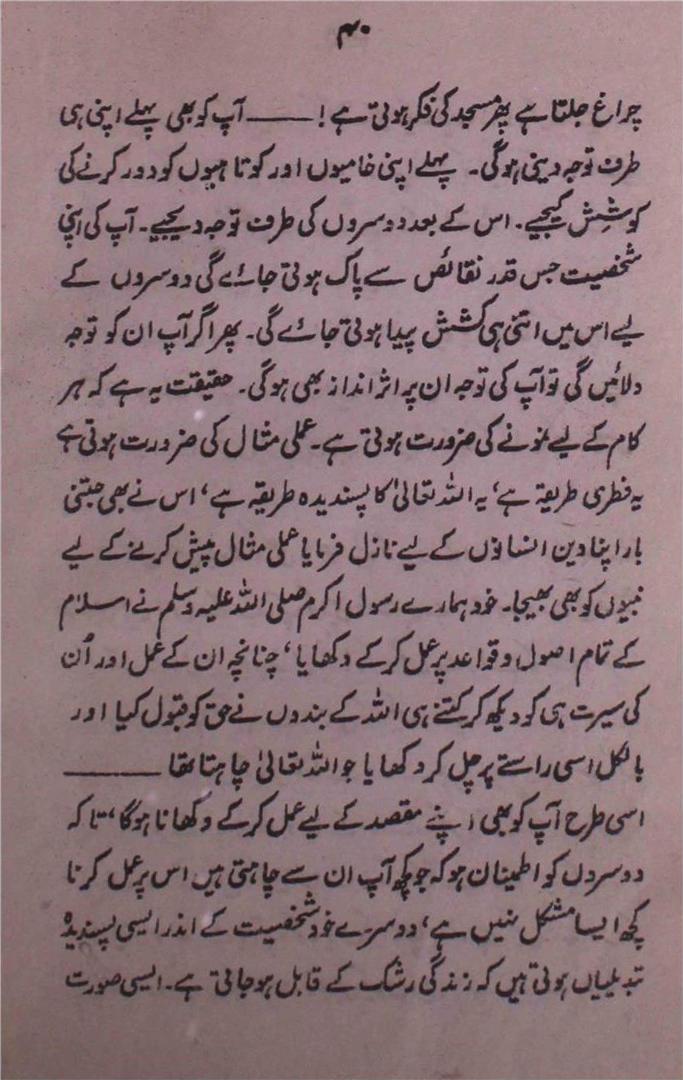 ۴۰
چراغ جلتا ہے پھر مسجد کی فکر ہوتی ہے! ——— آپ کو بھی پہلے اپنی ہی
طرف توجہ دینی ہوگی۔ پہلے اپنی خامیوں اور کوتاہیوں کو دور کرنے کی
کوشِش کیجیے۔ اس کے بعد دوسروں کی طرف توجہ دیجیے۔ آپ کی اپنی
شخصیت جس قدر نقائص سے پاک ہوتی جائے گی دوسروں کے
لیے اس میں اتنی ہی کشش پیدا ہوتی جائے گی۔ پھر اگر آپ ان کو توجہ
دلائیں گی تو آپ کی توجہ ان پر اثر انداز بھی ہوگی۔ حقیقت یہ ہے کہ ہر
کام کے لیے نمونے کی ضرورت ہوتی ہے۔ عملی مثال کی ضرورت ہوتی ہے
یہ فطری طریقہ ہے، یہ اللہ تعالیٰ کا پسندیدہ طریقہ ہے، اس نے بھی جتنی
بار اپنا دین انسانوں کے لیے نازل فرمایا عملی مثال پیش کرنے کے لیے
نبیوں کو بھی بھیجا۔ خود ہمارے رسول اکرم صلی اللہ علیہ وسلم نے اسلام
کے تمام اصول و قواعد پر عمل کرکے دکھایا، چنانچہ ان کے عمل اور اُن
کی سیرت ہی کو دیکھ کر کتنے ہی اللہ کے بندوں نے حق کو قبول کیا اور
بالکل اسی راستے پر چل کر دکھایا جو اللہ تعالیٰ چاہتا تھا ———
اسی طرح آپ کو بھی اپنے مقصد کے لیے عمل کرکے دکھانا ہوگا، تا کہ
دوسروں کو اطمینان ہو کہ جو کچھ آپ ان سے چاہتی ہیں اس پر عمل کرنا
کچھ ایسا مشکل نہیں ہے، دوسرے خود شخصیت کے اندر ایسی پسندیدہ
تبدیلیاں ہوتی ہیں کہ زندگی رشک کے قابل ہو جاتی ہے۔ ایسی صورت